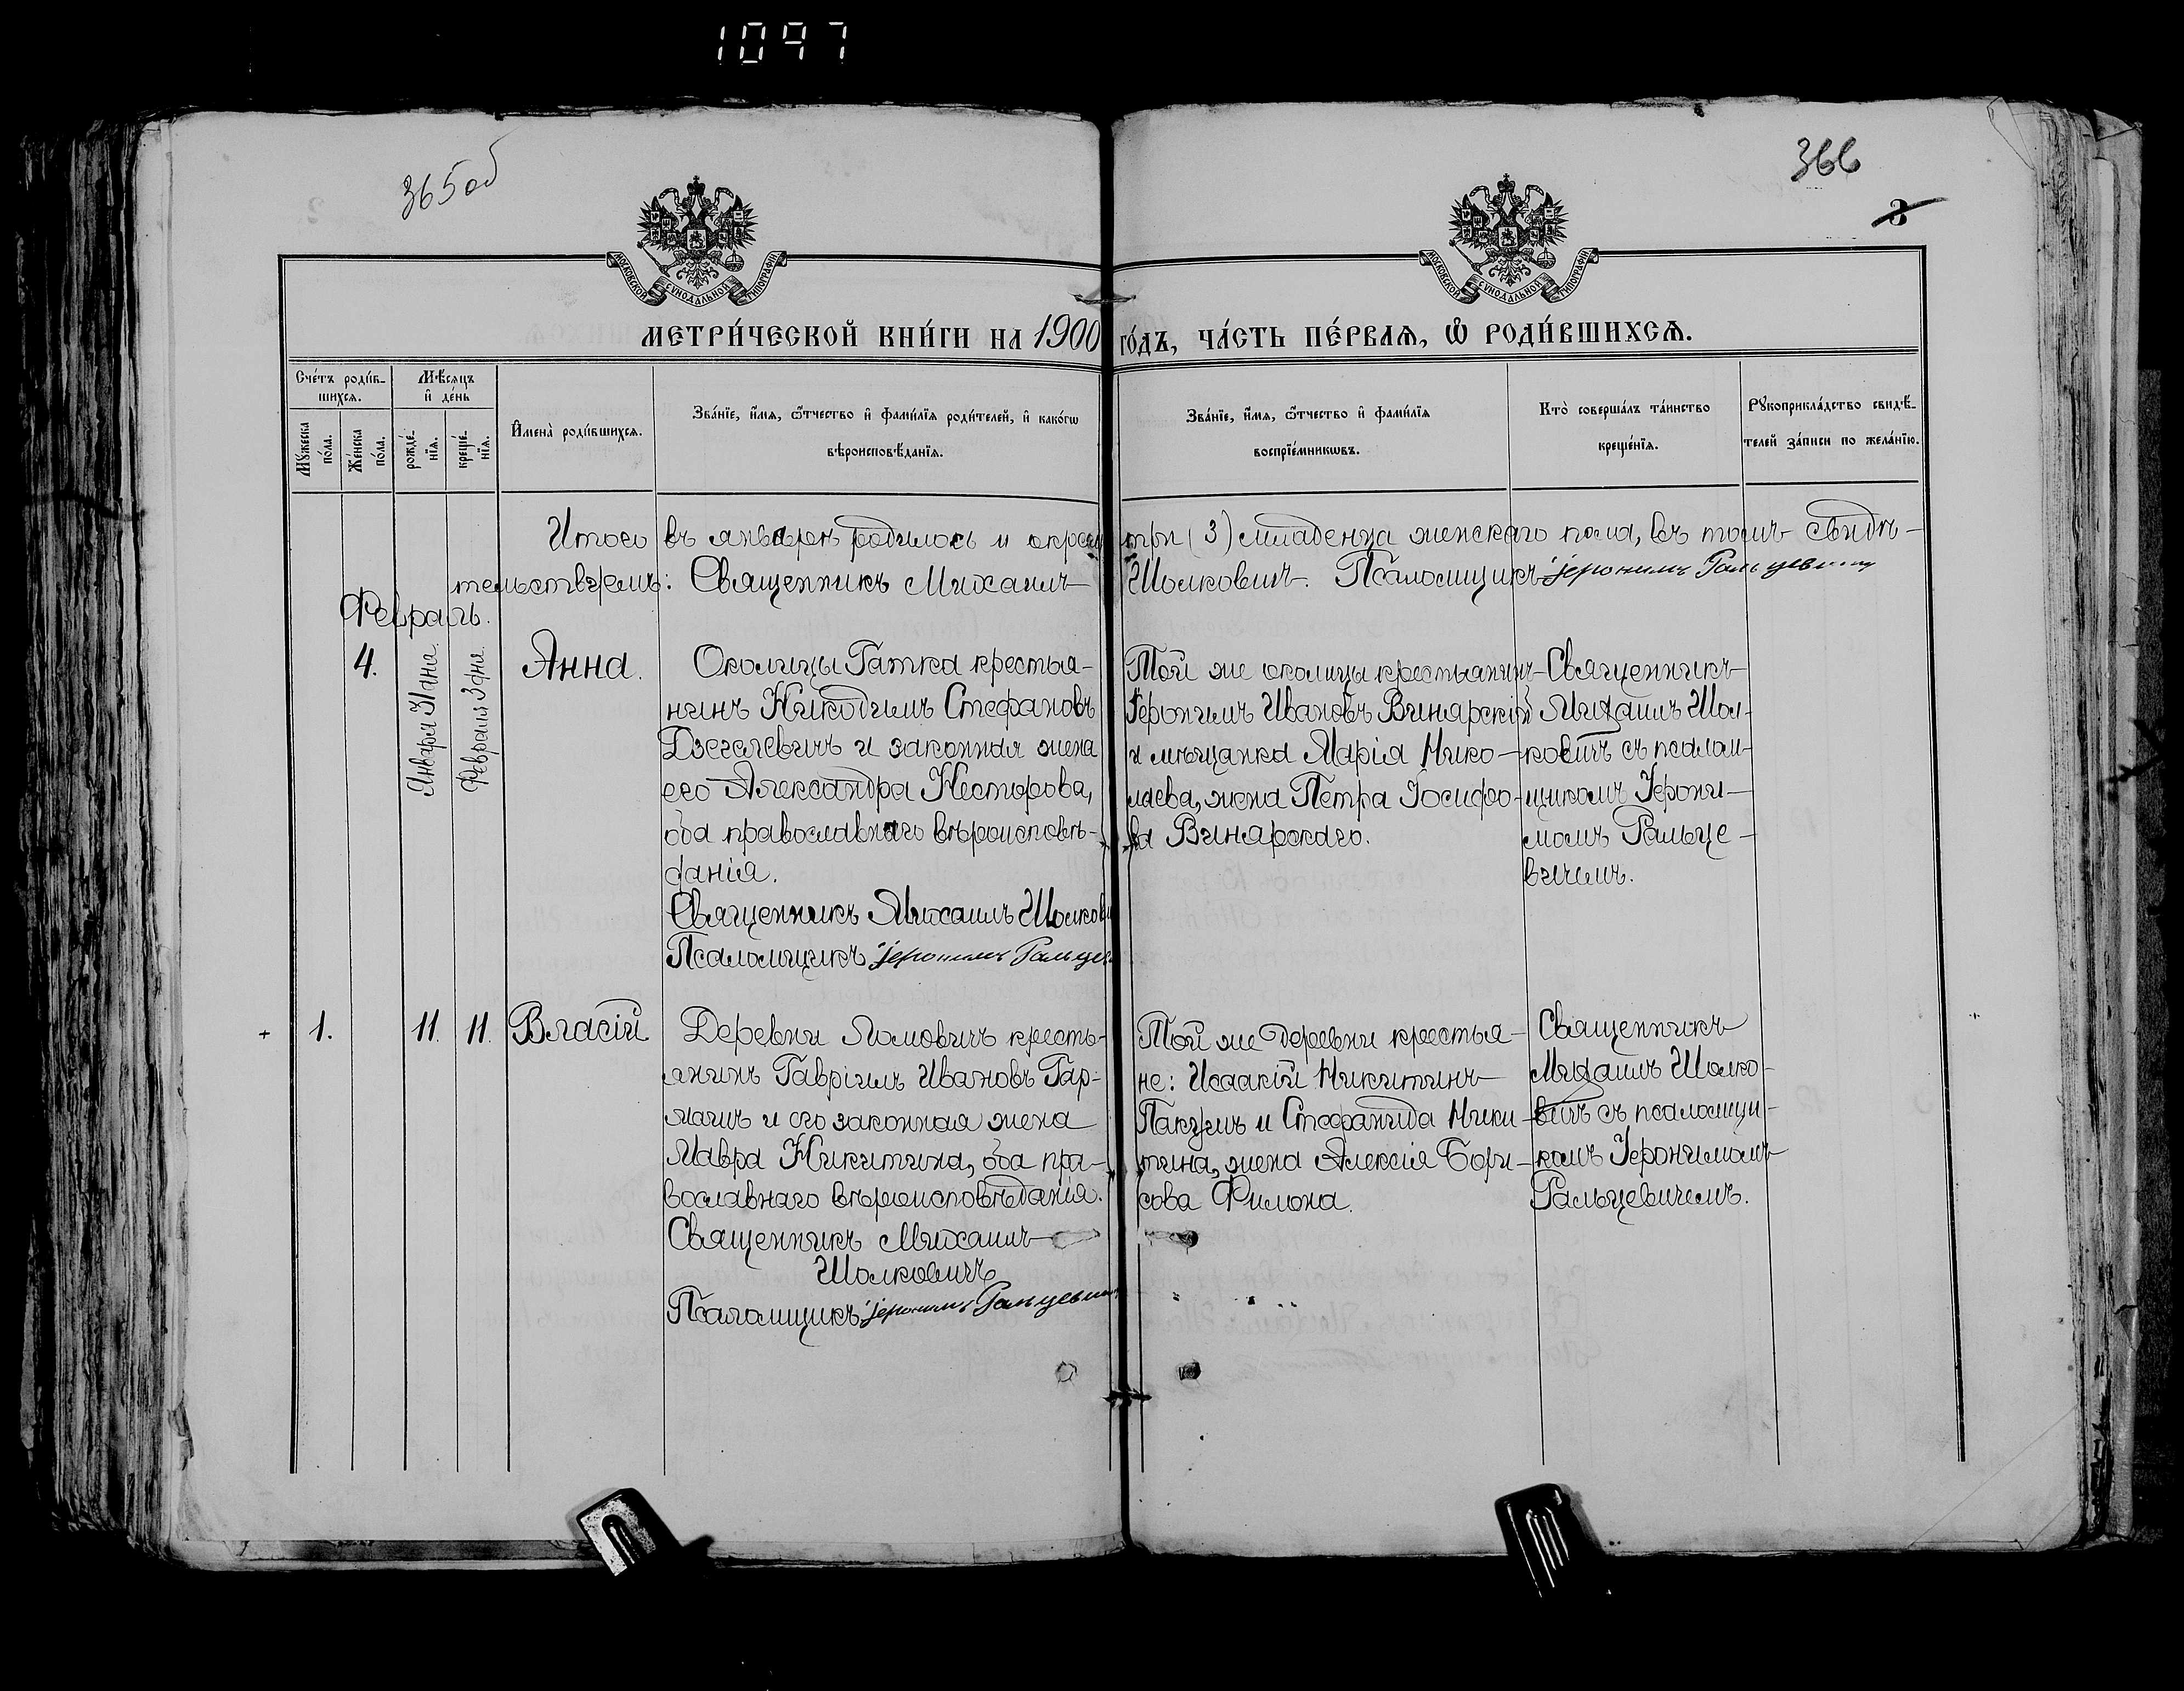 1097
365об
366
3
МОСКОВСКОЙ СѴНОДАЛЬНОЙ ТИПОГРАФІИ
МОСКОВСКОЙ СѴНОДАЛЬНОЙ ТИПОГРАФІИ
МЕТРИ́ЧЕСКОЙ КНИ́ГИ НА 1900 ГО́ДЪ, ЧА́СТЬ ПЕ́РВАѦ, Ѡ҆ РОДИ́ВШИХСѦ.
Сче́тъ роди́в-
шихсѧ.
Мꙋ́жеска
по́ла.
Же́нска
по́ла.
Мѣ́сѧцъ
и҆ де́нь
рожде́-
нїѧ.
креще́-
нїѧ.
И҆мена̀ роди́вшихсѧ.
Зва́нїе, и҆́мѧ, ѻ҆́тчество и҆ фами́лїѧ роди́телей, и҆ како́гѡ
вѣроисповѣ́данїѧ.
Зва́нїе, и҆́мѧ, ѻ҆́тчество и҆ фами́лїѧ
воспрїе́мникѡвъ.
Кто̀ соверша́лъ та́инство
креще́нїѧ.
Рꙋкоприкла́дство свидѣ́-
телей за́писи по жела́нїю.
Итого въ январѣ родилось и окрещ три (3) младенца женскаго пола, въ томъ свидѣ-
тельствуемъ: Священникъ Михаилъ Шолковичъ. Псаломщикъ Іеронимъ Гальцевичъ
Февраль.
4.
Января 31 дня.
Февраля 3 дня.
Анна.
Околицы Гатка крестья-
нинъ Никодимъ Стефановъ
Дзегелевичъ и законная жена
его Александра Несторова,
оба православнаго вѣроисповѣ-
данія.
Священникъ Михаилъ Шолкови
Псаломщикъ Іеронимъ Гальцев
Той же околицы крестьянинъ
Іеронимъ Ивановъ Винярскій
и мѣщанка Марія Нико-
лаева, жена Петра Іосифо-
ва Винярскаго.
Священникъ
Михаилъ Шол-
ковичъ съ псалом-
щикомъ Іерони-
момъ Гальце-
вичемъ.
1.
11.
11.
Власій
Деревни Ломовичъ кресть-
янинъ Гавріилъ Ивановъ Гар-
магъ и его законная жена
Мавра Никитина, оба пра-
вославнаго вѣроисповѣданія.
Священникъ Михаилъ
Шолковичъ
Псаломщикъ Іеронимъ Гальцевичъ
Той же деревни крестья-
не: Исаакій Никитинъ
Пакушъ и Стефанида Ники-
тина, жена Алексія Бори-
сова Филона.
Священникъ
Михаилъ Шолко-
вичъ съ псаломщи-
комъ Іеронимомъ
Гальцевичемъ.